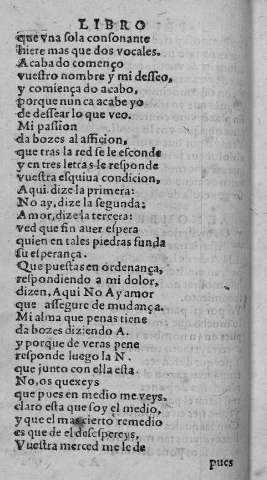 LIBRO
que vna sola consonante
hiere mas que dos vocales.
Acaba do començo
vuestro nombre y mi desseo,
y comiença do acabo,
porque nunca acabe yo
de dessear lo que veo.
Mi passion
da bozes al afficion,
que tras la red se le esconde
y en tres letras le responde
vuestra esquiua condicion,
Aqui. dize la primera:
No ay, dize la segunda;
Amor, dize la tercera:
ved que fin auer espera
quien en tales piedras funda
su esperança.
Que puestas en ordenança,
respondiendo a mi dolor,
dizen, Aqui No Ay amor
que assegure de mudança.
Mi alma que penas tiene
da bozes diziendo A.
y porque de veras pene
responde luego la N.
que junto con ella esta
No, os quexeys
que pues en medio me veys.
claro esta que soy el medio,
y que el mas cierto remedio
es que de el desespereys,
Vuestra merced me le de
pues